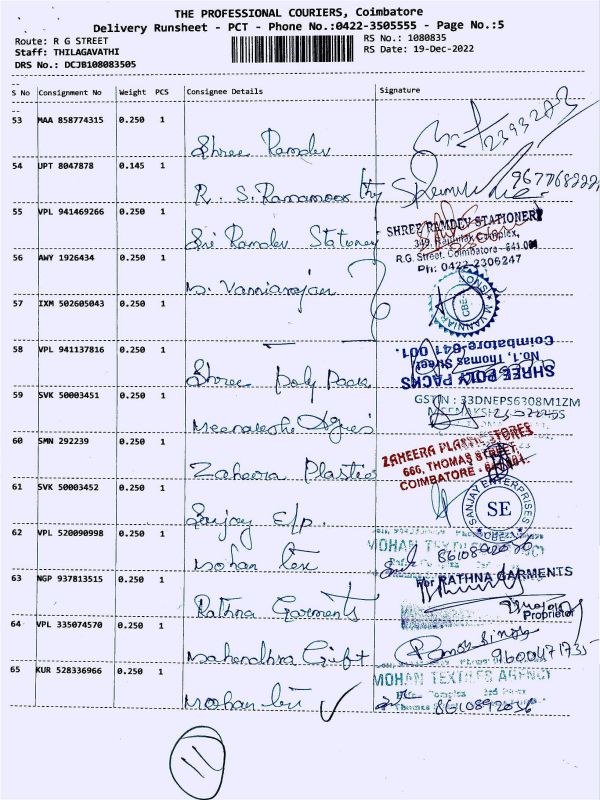 THE PROFESSIONAL COURIERS, Coimbatore
Delivery Runsheet - PCT - Phone No.:0422-3505555 - Page No.:5
Route: R G STREET
RS No.: 1080835
Staff: THILAGAVATHI
RS Date: 19-Dec-2022
DRS No.: DCJB108083505
S No Consignment No Weight PCS Consignee Details Signature
53 MAA 858774315 0.250 1
Shree Ramdev
54 JPT 8047878 0.145 1
R. S. Ramamoorthy
55 VPL 941469266 0.250 1
Sri Ramdev Stationery
SHREE RAMDEV STATIONERY
349, Complex,
R.G. Street, Coimbatore - 641 001
Ph: 0422-2306247
56 AWY 1926434 0.250 1
M. Vanniarajan
57 IXM 502605043 0.250 1
58 VPL 941137816 0.250 1
Shree Poly Packs
SHREE POLY PACKS
No.1, Thomas Street
Coimbatore-641 001.
59 SVK 50003451 0.250 1
GSTIN : 33DNEPS6308M1ZM
60 SMN 292239 0.250 1
Zaheera Plastic
ZAHEERA PLASTIC STORES
666, THOMAS STREET,
COIMBATORE
61 SVK 50003452 0.250 1
Sanjay E/p.
SANJAY ENTERPRISES
SE
CBE
62 VPL 520090998 0.250 1
Mohan Tex
MOHAN TEXTILES AGENCY
8610892036
63 NGP 937813515 0.250 1
Rathna Garments
For RATHNA GARMENTS
Proprietor
64 VPL 335074570 0.250 1
Mahendhra Gift
9600471735
65 KUR 528336966 0.250 1
MOHAN TEXTILES AGENCY
8610892036
11